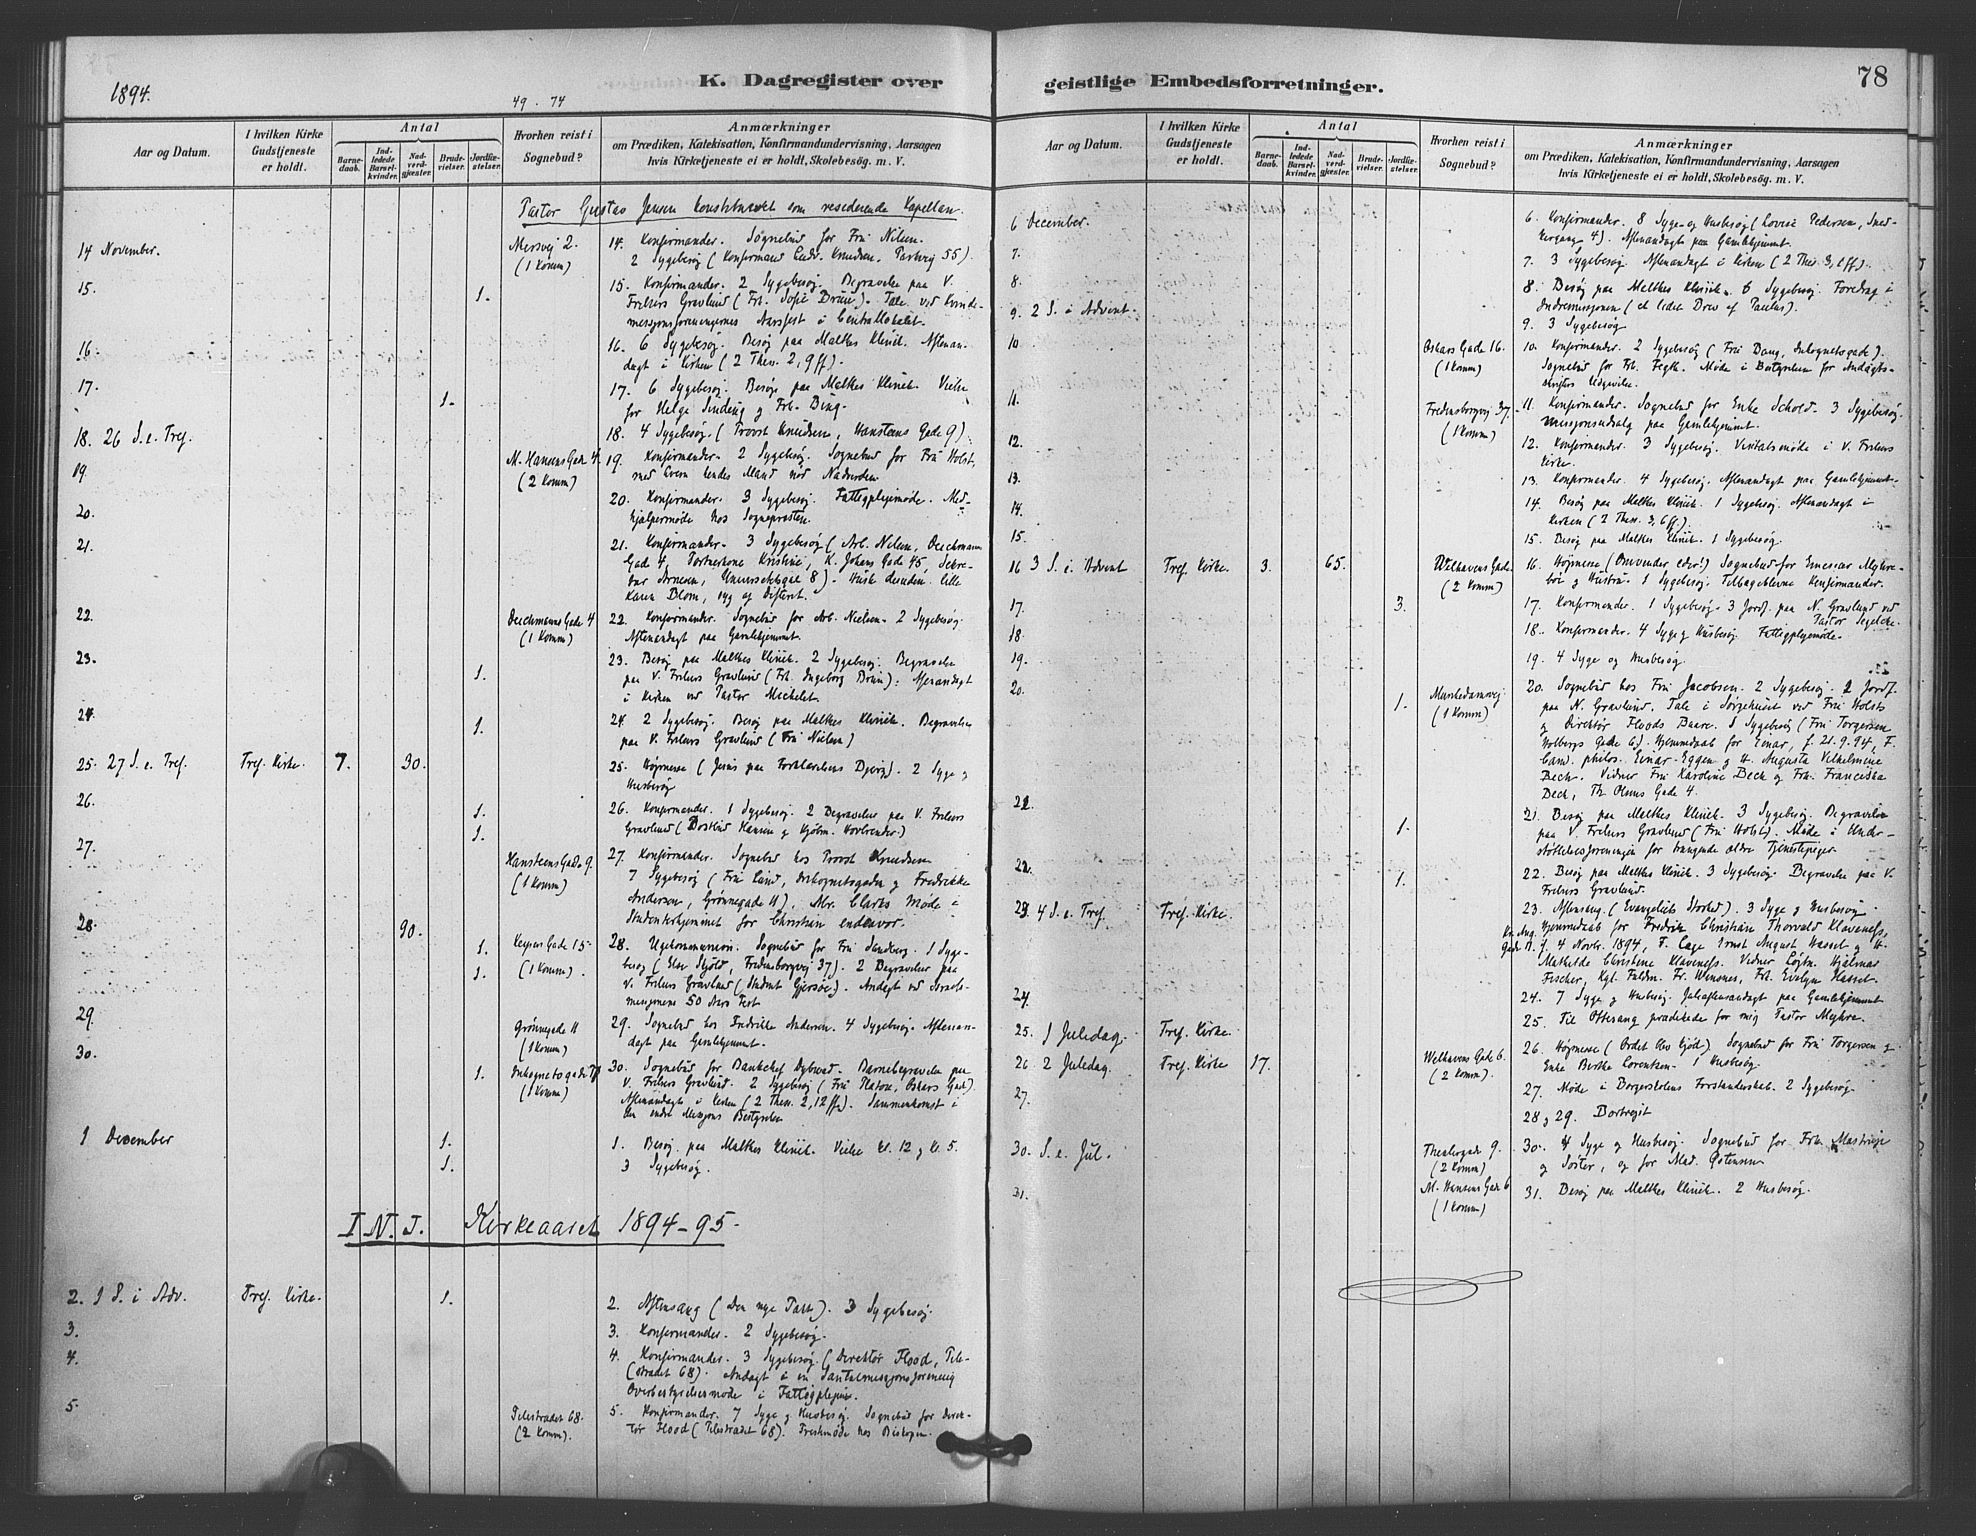 1894.
49 . 74
K. Dagregister over
Aar og Datum.
I hvilken Kirke
Gudstjeneste
er holdt.
Antal
Barne-
daab.
Ind-
ledede
Barsel-
kvinder.
Nad-
verd-
gjæster.
Brude-
vielser.
Jordfæ-
stelser.
Hvorhen reist i
Sognebud?
Anmærkninger
om Prædiken, Katekisation, Konfirmandundervisning, Aarsagen
hvis Kirketjeneste ei er holdt, Skolebesøg. m. V.
Pastor Gustav Jensen konstitueret som residerende Kapellan.
14 November.
(1 Komm)
14. Konfirmander. Sognebud for Fru Nilsen.
2 Sygebesøg (Konfirmand Ludv. Knudsen, Parkvej 55).
15.
1.
15. Konfirmander. 2 Sygebesøg. Begravelse paa V.
Frelsers Gravlund (Frk. Sofie Bruu). Tale ved Kvinde-
missjonsforeningernes Aarsfest i Centrallokalet.
16.
16. 6 Sygebesøg. Besøg paa Malthes Klinik. Aftenan-
dagt i Kirken (2 Thess. 2, 9 ff).
17.
1.
17. 6 Sygebesøg. Besøg paa Malthes Klinik. Vielse
for Helge Sinding og Frk. Bing.
18. 26 S. e. Tref.
18. 4 Sygebesøg. (Provst Knudsen, Hansteens Gade 9)
19.
M. Hansens Gade 4.
(2 Komm)
19. Konfirmander. 2 Sygebesøg. Sognebud for Fru Holst,
med hendes Mand nød Nadverden
20.
20. Konfirmander. 3 Sygebesøg. Fattigplejemøde. Med-
hjælpermøde hos Sognepresten.
21.
21. Konfirmander. 3 Sygebesøg (Arb. Nilsen, Deichmanns
Gade 4, Portnerkone Kristine, K. Johans Gade 45, Sekre-
tær Arnesen, Universitetsgade 8). Husk lille
Karen Blom, syg og
22.
Deichmanns Gade 4
(1 Komm)
22. Konfirmander. Sognebud for Arb. Nielsen. 2 Sygebesøg.
Aftenandagt paa Gamlehjemmet.
23.
1.
23. Besøg paa Malthes Klinik. 2 Sygebesøg. Begravelse
paa V. Frelsers Gravlund (Frk. Ingeborg Bruu). Aftenandagt
i Kirken ved Pastor Michelet.
24.
1.
24. 2 Sygebesøg. Besøg paa Malthes Klinik. Begravelse
paa V. Frelsers Gravlund (Fru Nielsen)
25. 27 S. e. Tref.
Tref. Kirke.
7.
30.
25. Højmesse (Jesus paa Forklarelsens Bjerg). 2 Syge og
Husbesøg
26.
1.
1.
26. Konfirmander. 1 Sygebesøg. 2 Begravelser paa V. Frelsers
Gravlund (Postbud Hansen og Kjøbm.
27.
Hansteens Gade 9.
(1 Komm)
27. Konfirmander. Sognebud hos Provst Knudsen
7 Sygebesøg (Fru Lund, Inkognitogaden og Fredrikke
Andersen, Grønnegade 11). Mr. Clarks Møde i
Studenterhjemmet for Christian endeavor.
28.
90.
1.
1.
Keysers Gade 15
(1 Komm)
28. Ugekommunion. Sognebud for Fru Sandberg. 1 Syge-
besøg (Else Skjold, Fredensborgvej 37). 2 Begravelser paa
V. Frelsers Gravlund (Student Gjersøe). Andagt ved Israels-
missjonens 50 Aars Fest
29.
Grønnegade 11
(1 Komm)
29. Sognebud hos Fredrikke Andersen. 4 Sygebesøg. Aftenan-
dagt paa Gamlehjemmet.
30.
1.
Inkognitogade
(1 Komm)
30. Sognebud for Bankchef Dybwad. Barnebegravelse paa
V. Frelsers Gravlund. 2 Sygebesøg (Fru Platou, Oskars Gade)
Aftenandagt i Kirken (2 Thess. 2, 12 ff). Sammenkomst i
den indre Missjons Bestyrelse
1 December
1.
1.
1. Besøg paa Malthes Klinik. Vielse Kl. 12 og Kl. 5.
3 Sygebesøg.
I. N. J. Kirkeaaret 1894-95.
2. 1 S. i Adv.
Tref. Kirke.
1.
2. Aftensang (Den nye Pagt). 3 Sygebesøg.
3.
3. Konfirmander. 2 Sygebesøg.
4.
4. Konfirmander. 3 Sygebesøg. (Direktør Flood, Pile-
strædet 68). Andagt i en Santalmissjonsforening
Overbestyrelsesmøde i Fattigplejen.
5.
Pilestrædet 68.
(2 Komm).
5. Konfirmander. 7 Syge og Husbesøg. Sognebud for Direk-
tør Flood (Pilestrædet 68). Prestemøde hos Biskopen.
geistlige Embedsforretninger.
78
Aar og Datum.
I hvilken Kirke
Gudstjeneste
er holdt.
Antal
Barne-
daab.
Ind-
ledede
Barsel-
kvinder.
Nad-
verd-
gjæster.
Brude-
vielser.
Jordfæ-
stelser.
Hvorhen reist i
Sognebud?
Anmærkninger
om Prædiken, Katekisation, Konfirmandundervisning, Aarsagen
hvis Kirketjeneste ei er holdt, Skolebesøg. m. V.
6 December.
6. Konfirmander. 8 Syge- og Husbesøg (Lovise Pedersen, Sned-
kergang 4). Aftenandagt paa Gamlehjemmet.
7.
7. 3 Sygebesøg. Aftenandagt i Kirken (2 Thess. 3, 1 ff).
8.
8. Besøg paa Malthes Klinik. 6 Sygebesøg. Foredrag i
Indremissjonen (et lidet Brev af Paulus).
9. 2 S. i Advent.
9. 3 Sygebesøg
10.
Oskars Gade 16.
(1 Komm)
10. Konfirmander. 2 Sygebesøg (Fru Bang, Inkognitogade).
Sognebud for Frk. Møde i Bestyrelsen for Andagts-
skrifters Udgivelse.
11.
Fredensborgvej 37.
(1 Komm)
11. Konfirmander. Sognebud for Enke Schold. 3 Sygebesøg.
Missjonsudsalg paa Gamlehjemmet.
12.
12. Konfirmander. 3 Sygebesøg. Visitatsmøde i V. Frelsers
Kirke.
13.
13. Konfirmander. 4 Sygebesøg. Aftenandagt paa Gamlehjemmet.
14.
14. Besøg paa Malthes Klinik. 1 Sygebesøg. Aftenandagt i
Kirken (2 Thess. 3, 6 ff).
15.
15. Besøg paa Malthes Klinik. 1 Sygebesøg.
16 3 S. i. Advent
Tref. Kirke.
3.
65.
Welhavens Gade
(2 Komm)
16. Højmesse (Omvender eder!) Sognebud for Emissær Myhre-
bøe og Hustru. 1 Sygebesøg. Tilbageblevne Konfirmander.
17.
3.
17. Konfirmander. 1 Sygebesøg. 3 Jordf. paa N. Gravlund ved
Pastor Segelcke.
18.
18. Konfirmander. 4 Syge og Husbesøg. Fattigplejemøde.
19.
19. 4 Syge og Husbesøg.
20.
1.
Munkedamsvej
(1 Komm)
20. Sognebud hos Fru Jacobsen. 2 Sygebesøg. 2 Jordf.
paa N. Gravlund. Tale i Sørgehuset ved Fru Holsts
og Direktør Floods Baare. 8 Sygebesøg (Fru Torgersen
Holbergs Gade 6). Hjemmedaab for Einar, f. 21.9.94, F.
Cand. philos. Einar Eggen og H. Augusta Vilhelmine
Beck. Vidner Fru Karoline Beck og Frk. Franciska
Beck, Th. Olsens Gade 4.
21.
1.
21. Besøg paa Malthes Klinik. 3 Sygebesøg. Begravelse
paa V. Frelsers Gravlund (Fru Holst). Møde i Under-
støttelsesforeningen for trængende ældre Tjenestepiger.
22.
1.
22. Besøg paa Malthes Klinik. 3 Sygebesøg. Begravelse paa V.
Frelsers Gravlund.
23. 4 S. i. Tref.
Tref. Kirke.
23. Aftensang. (Evangeliets Storhed). 3 Syge og Husbesøg.
Hjemmedaab for Fredrik Christian Thorvald Klaveness,
f. 4 Novbr. 1894, F. Cage Ernst August Hassel og H.
Mathilde Christine Klaveness. Vidner Løjtn. Hjalmar
Fischer, Kgl. Fuldm. Fr. Winsnes, Frk. Evelyn Hassel.
24.
24. 7 Syge og Husbesøg. Juleaftensandagt paa Gamlehjemmet
25. 1 Juledag.
Tref. Kirke.
25. Til Ottesang prædikede for mig Pastor Myhre.
26 2 Juledag.
Tref. Kirke
17.
Welhavens Gade 6.
(2 Komm).
26. Højmesse (Ordet blev Kjød). Sognebud for Fru Torgersen og
Enke Berthe Lorentzen. 1 Husbesøg.
27.
27. Møde i Borgerskolens Forstanderskab. 2 Sygebesøg.
28 og 29. Bortrejst
30. S. e. Jul.
Theatergade 9.
(2 Komm)
M. Hansens Gade 6
(1 Komm)
30. 4 Syge og Husbesøg. Sognebud for Frk.
og Søster, og for Mad.
31.
31. Besøg paa Malthes Klinik. 2 Husbesøg.